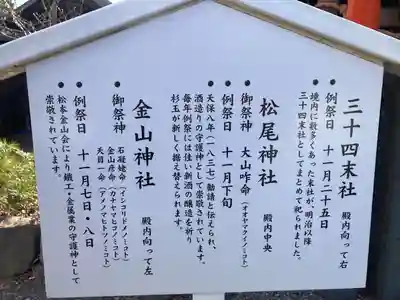 三十四末社 殿内向って右
● 例祭日 十一月二十五日
● 境内に数多くあった末社が、明治以降
三十四末社としてまとめて祀られました。
松尾神社 殿内中央
● 御祭神 大山咋命(オオヤマクイノミコト)
● 例祭日 十一月下旬
● 天保八年(一八三七)勧請と伝えられ、
酒造りの守護神として崇敬されています。
毎年例祭には佳い新酒の醸造を祈り
杉玉が新しく掲え替えられます。
金山神社 殿内向って左
● 御祭神 石凝姥命(イシコリドメノミコト)
金山彦命(カナヤマヒコノミコト)
天目一命(アメノマヒトツノミコト)
● 例祭日 十一月七日・八日
● 松本金山会により鉄工・金属業の守護神として
崇敬されています。